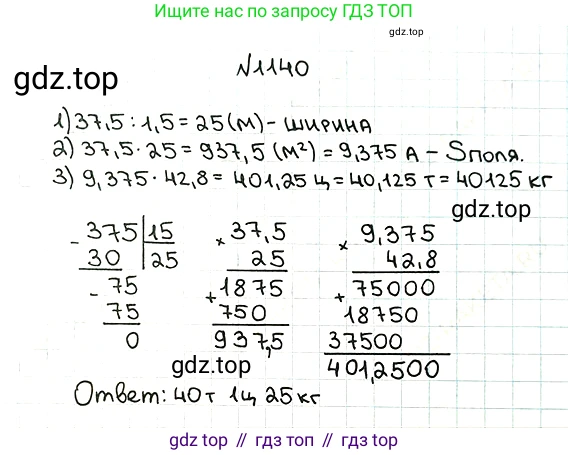 Ищите по запросу ГДЗ ТОП
gdz.top
gdz.top
N1140
1) 37,5 : 1,5 = 25 (м) - ширина
2) 37,5 · 25 = 937,5 (м²) = 9,375 а - Sполя.
3) 9,375 · 42,8 = 401,25 ц = 40,125 т = 40125 кг
gdz.top
- 375 | 15
30 25
- 75
75
0
× 37,5
25
+ 1875
750
937,5
× 9,375
42,8
+ 75000
18750
37500
401,2500
gdz.top
Ответ: 40т 1ц 25 кг
gdz top // гдз топ // gdz.top